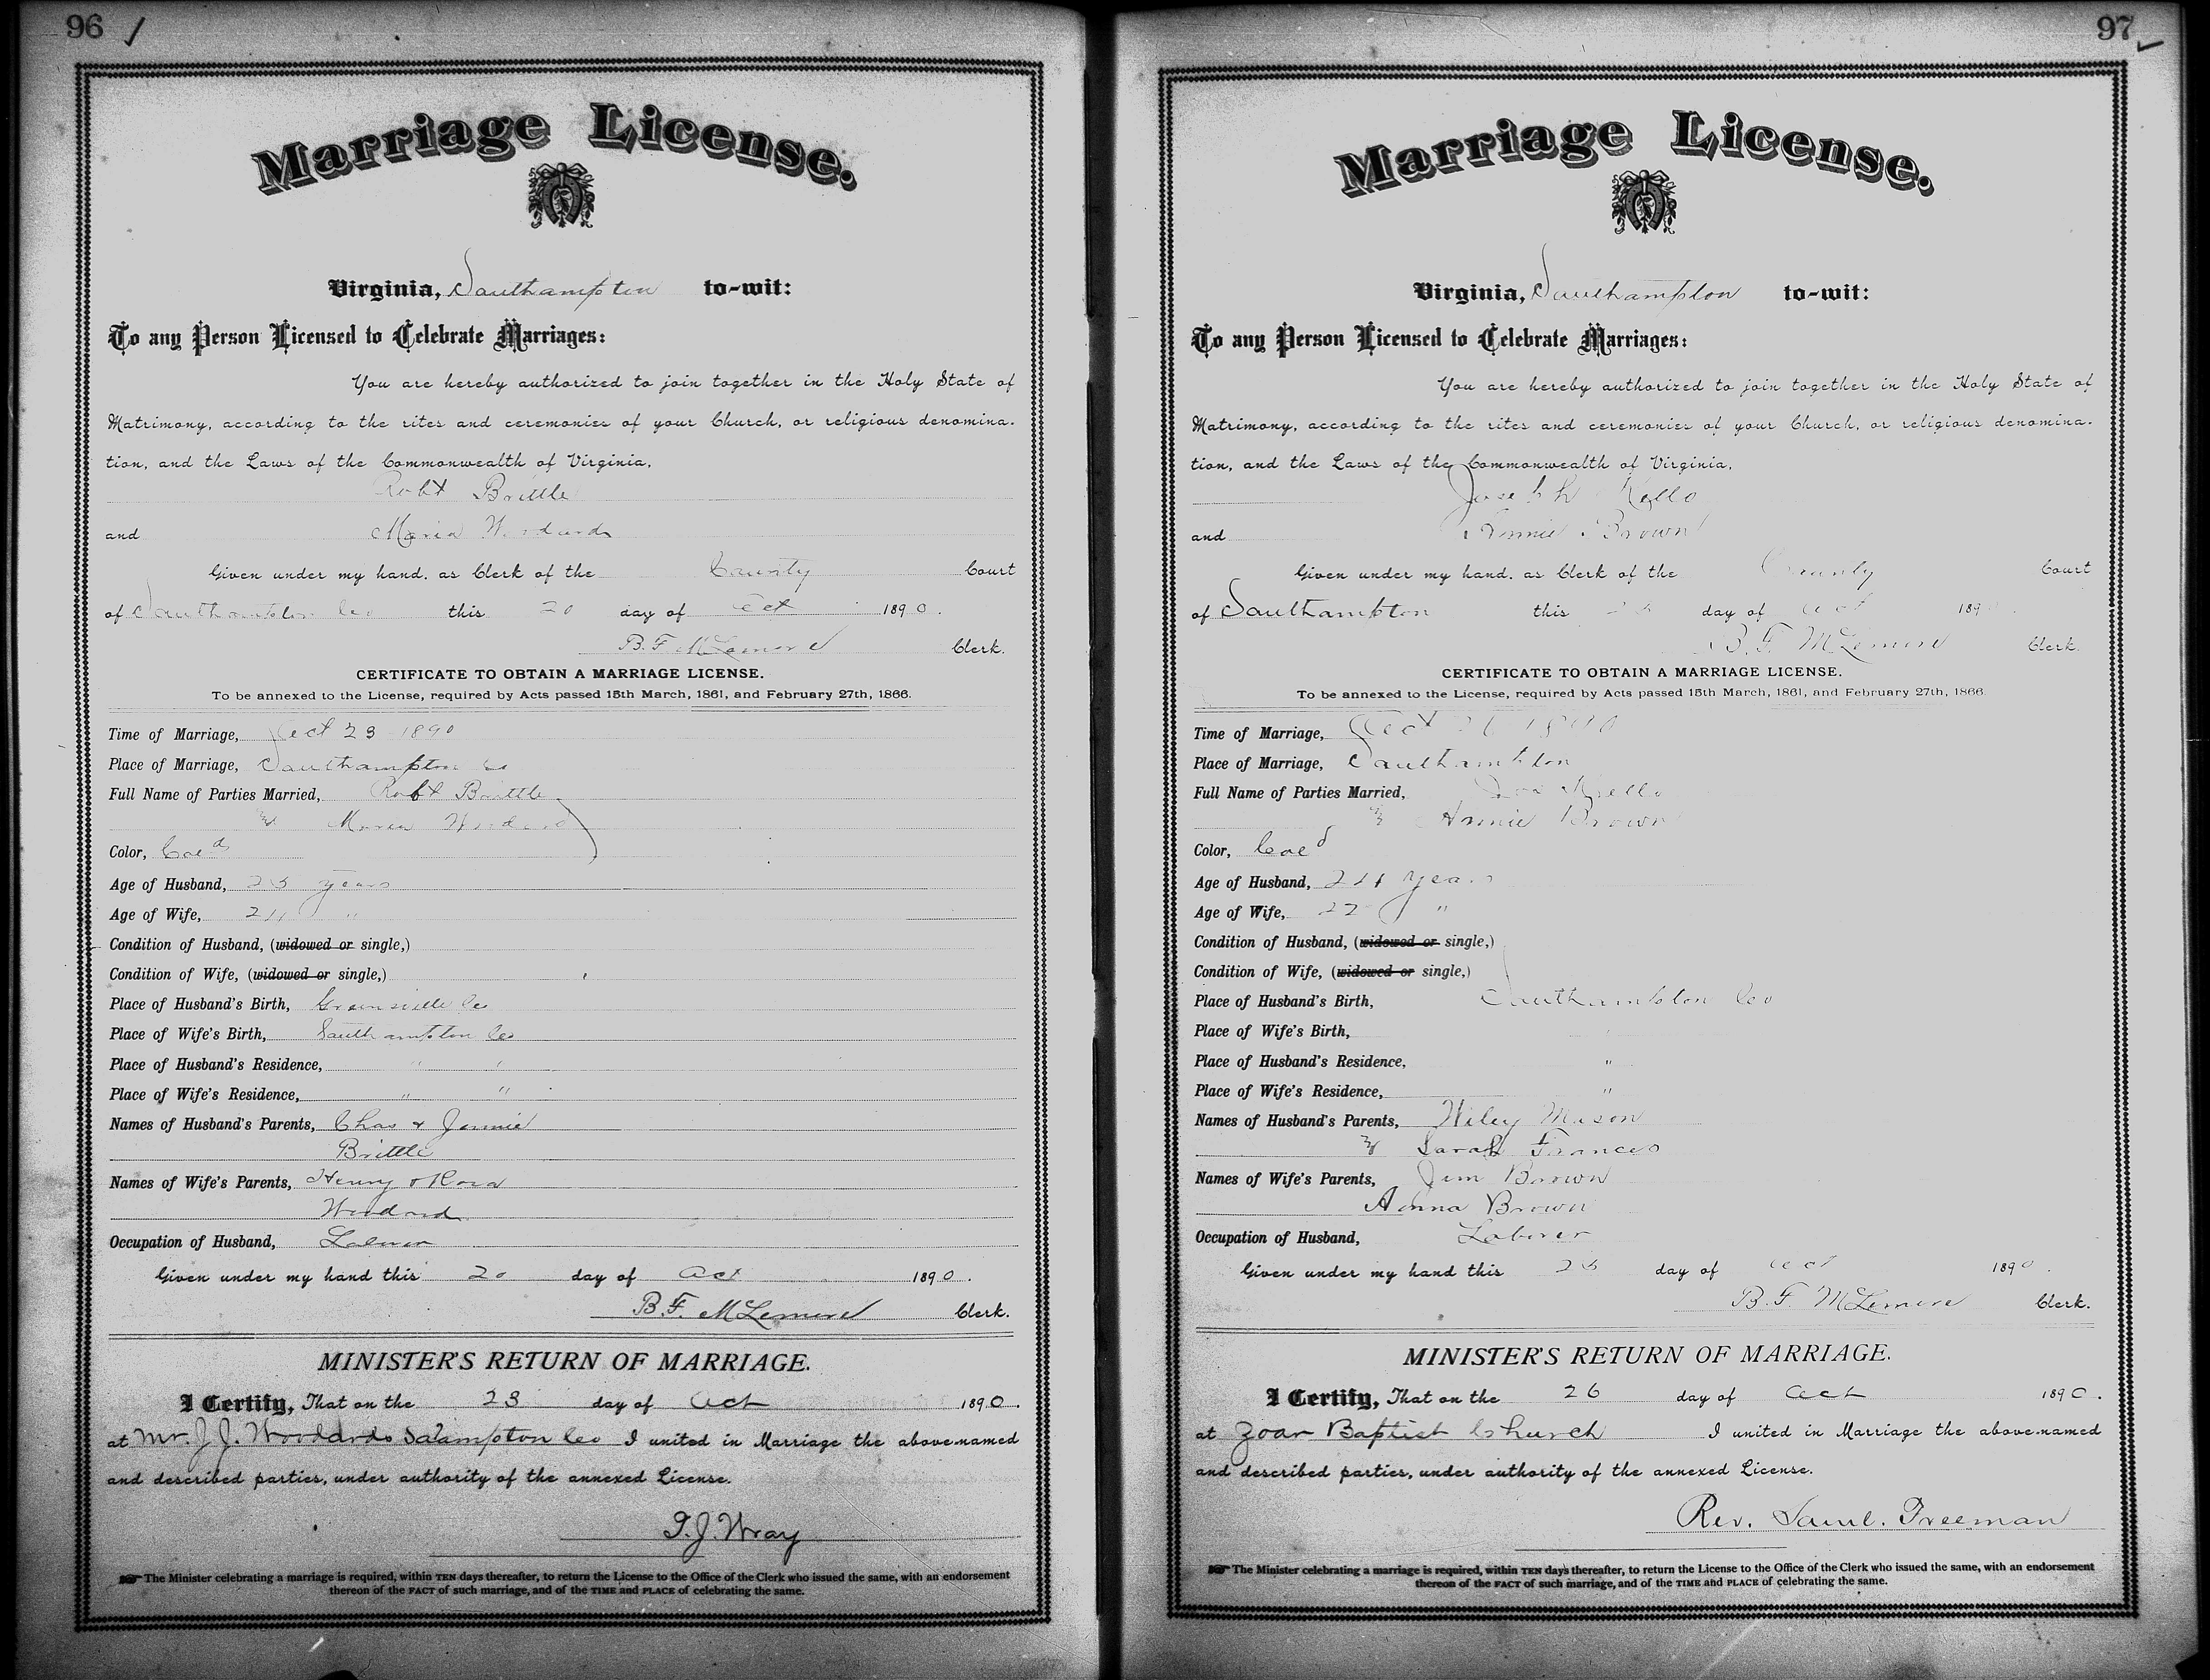 96
Marriage License.
Virginia, Southampton to-wit:
To any Person Licensed to Celebrate Marriages:
You are hereby authorized to join together in the Holy State of
Matrimony, according to the rites and ceremonies of your Church, or religious denomina-
tion, and the Laws of the Commonwealth of Virginia,
Robt Brittle
and Maria Woodard
Given under my hand, as Clerk of the County Court
of Southampton Co this 20 day of Oct 1890.
B. F. McLemore Clerk.
CERTIFICATE TO OBTAIN A MARRIAGE LICENSE.
To be annexed to the License, required by Acts passed 15th March, 1861, and February 27th, 1866.
Time of Marriage, Oct 23 1890
Place of Marriage, Southampton Co
Full Name of Parties Married, Robt Brittle
& Maria Woodard
Color, Cold
Age of Husband, years
Age of Wife, "
Condition of Husband, (widowed or single,)
Condition of Wife, (widowed or single,)
Place of Husband's Birth, Greensville Co
Place of Wife's Birth, Southampton Co
Place of Husband's Residence, " "
Place of Wife's Residence, " "
Names of Husband's Parents, Chas & Jennie
Brittle
Names of Wife's Parents, Henry &
Woodard
Occupation of Husband, Laborer
Given under my hand this 20 day of Oct 1890.
B. F. McLemore Clerk.
MINISTER'S RETURN OF MARRIAGE.
I Certify, That on the 23 day of Oct 1890.
at Mr. J. J. Woodards So'ampton Co I united in Marriage the above-named
and described parties, under authority of the annexed License.
J. Wray
The Minister celebrating a marriage is required, within TEN days thereafter, to return the License to the Office of the Clerk who issued the same, with an endorsement
thereon of the FACT of such marriage, and of the TIME and PLACE of celebrating the same.
97
Marriage License.
Virginia, Southampton to-wit:
To any Person Licensed to Celebrate Marriages:
You are hereby authorized to join together in the Holy State of
Matrimony, according to the rites and ceremonies of your Church, or religious denomina-
tion, and the Laws of the Commonwealth of Virginia,
Joseph Kello
and Annie Brown
Given under my hand, as Clerk of the County Court
of Southampton this day of Oct 189
B. F. McLemore Clerk.
CERTIFICATE TO OBTAIN A MARRIAGE LICENSE.
To be annexed to the License, required by Acts passed 15th March, 1861, and February 27th, 1866.
Time of Marriage, Oct 26 1890
Place of Marriage, Southampton
Full Name of Parties Married, Jos Kello
& Annie Brown
Color, Cold
Age of Husband, 24 years
Age of Wife, 22 "
Condition of Husband, (widowed or single,)
Condition of Wife, (widowed or single,)
Place of Husband's Birth, Southampton Co
Place of Wife's Birth,
Place of Husband's Residence, "
Place of Wife's Residence, "
Names of Husband's Parents, Wiley Mason
& Sarah Frances
Names of Wife's Parents, Jim Brown
Anna Brown
Occupation of Husband, Laborer
Given under my hand this day of Oct 1890.
B. F. McLemore Clerk.
MINISTER'S RETURN OF MARRIAGE.
I Certify, That on the 26 day of Oct 1890.
at Zoar Baptist Church I united in Marriage the above-named
and described parties, under authority of the annexed License.
Rev. Saml. Freeman
The Minister celebrating a marriage is required, within TEN days thereafter, to return the License to the Office of the Clerk who issued the same, with an endorsement
thereon of the FACT of such marriage, and of the TIME and PLACE of celebrating the same.